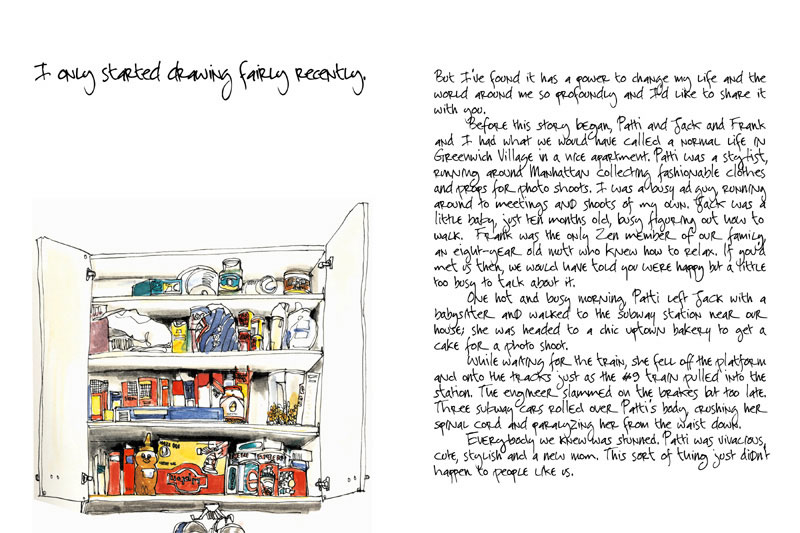 I only started drawing fairly recently.
But I've found it has a power to change my life and the
world around me so profoundly and I'd like to share it
with you.
Before this story began, Patti and Jack and Frank
and I had what we would have called a normal life in
Greenwich Village in a nice apartment. Patti was a stylist,
running around Manhattan collecting fashionable clothes
and props for photo shoots. I was a busy ad guy, running
around to meetings and shoots of my own. Jack was a
little baby, just ten months old, busy figuring out how to
walk. Frank was the only Zen member of our family,
an eight-year old mutt who knew how to relax. If you'd
met us then, we would have told you were happy but a little
too busy to talk about it.
One hot and busy morning, Patti left Jack with a
babysitter and walked to the subway station near our
house; she was headed to a chic uptown bakery to get a
cake for a photo shoot.
While waiting for the train, she fell off the platform
and onto the tracks just as the #9 train pulled into the
station. The engineer slammed on the brakes but too late.
Three subway cars rolled over Patti's body, crushing her
spinal cord and paralyzing her from the waist down.
Everybody we knew was stunned. Patti was vivacious,
cute, stylish and a new mom. This sort of thing just didn't
happen to people like us.